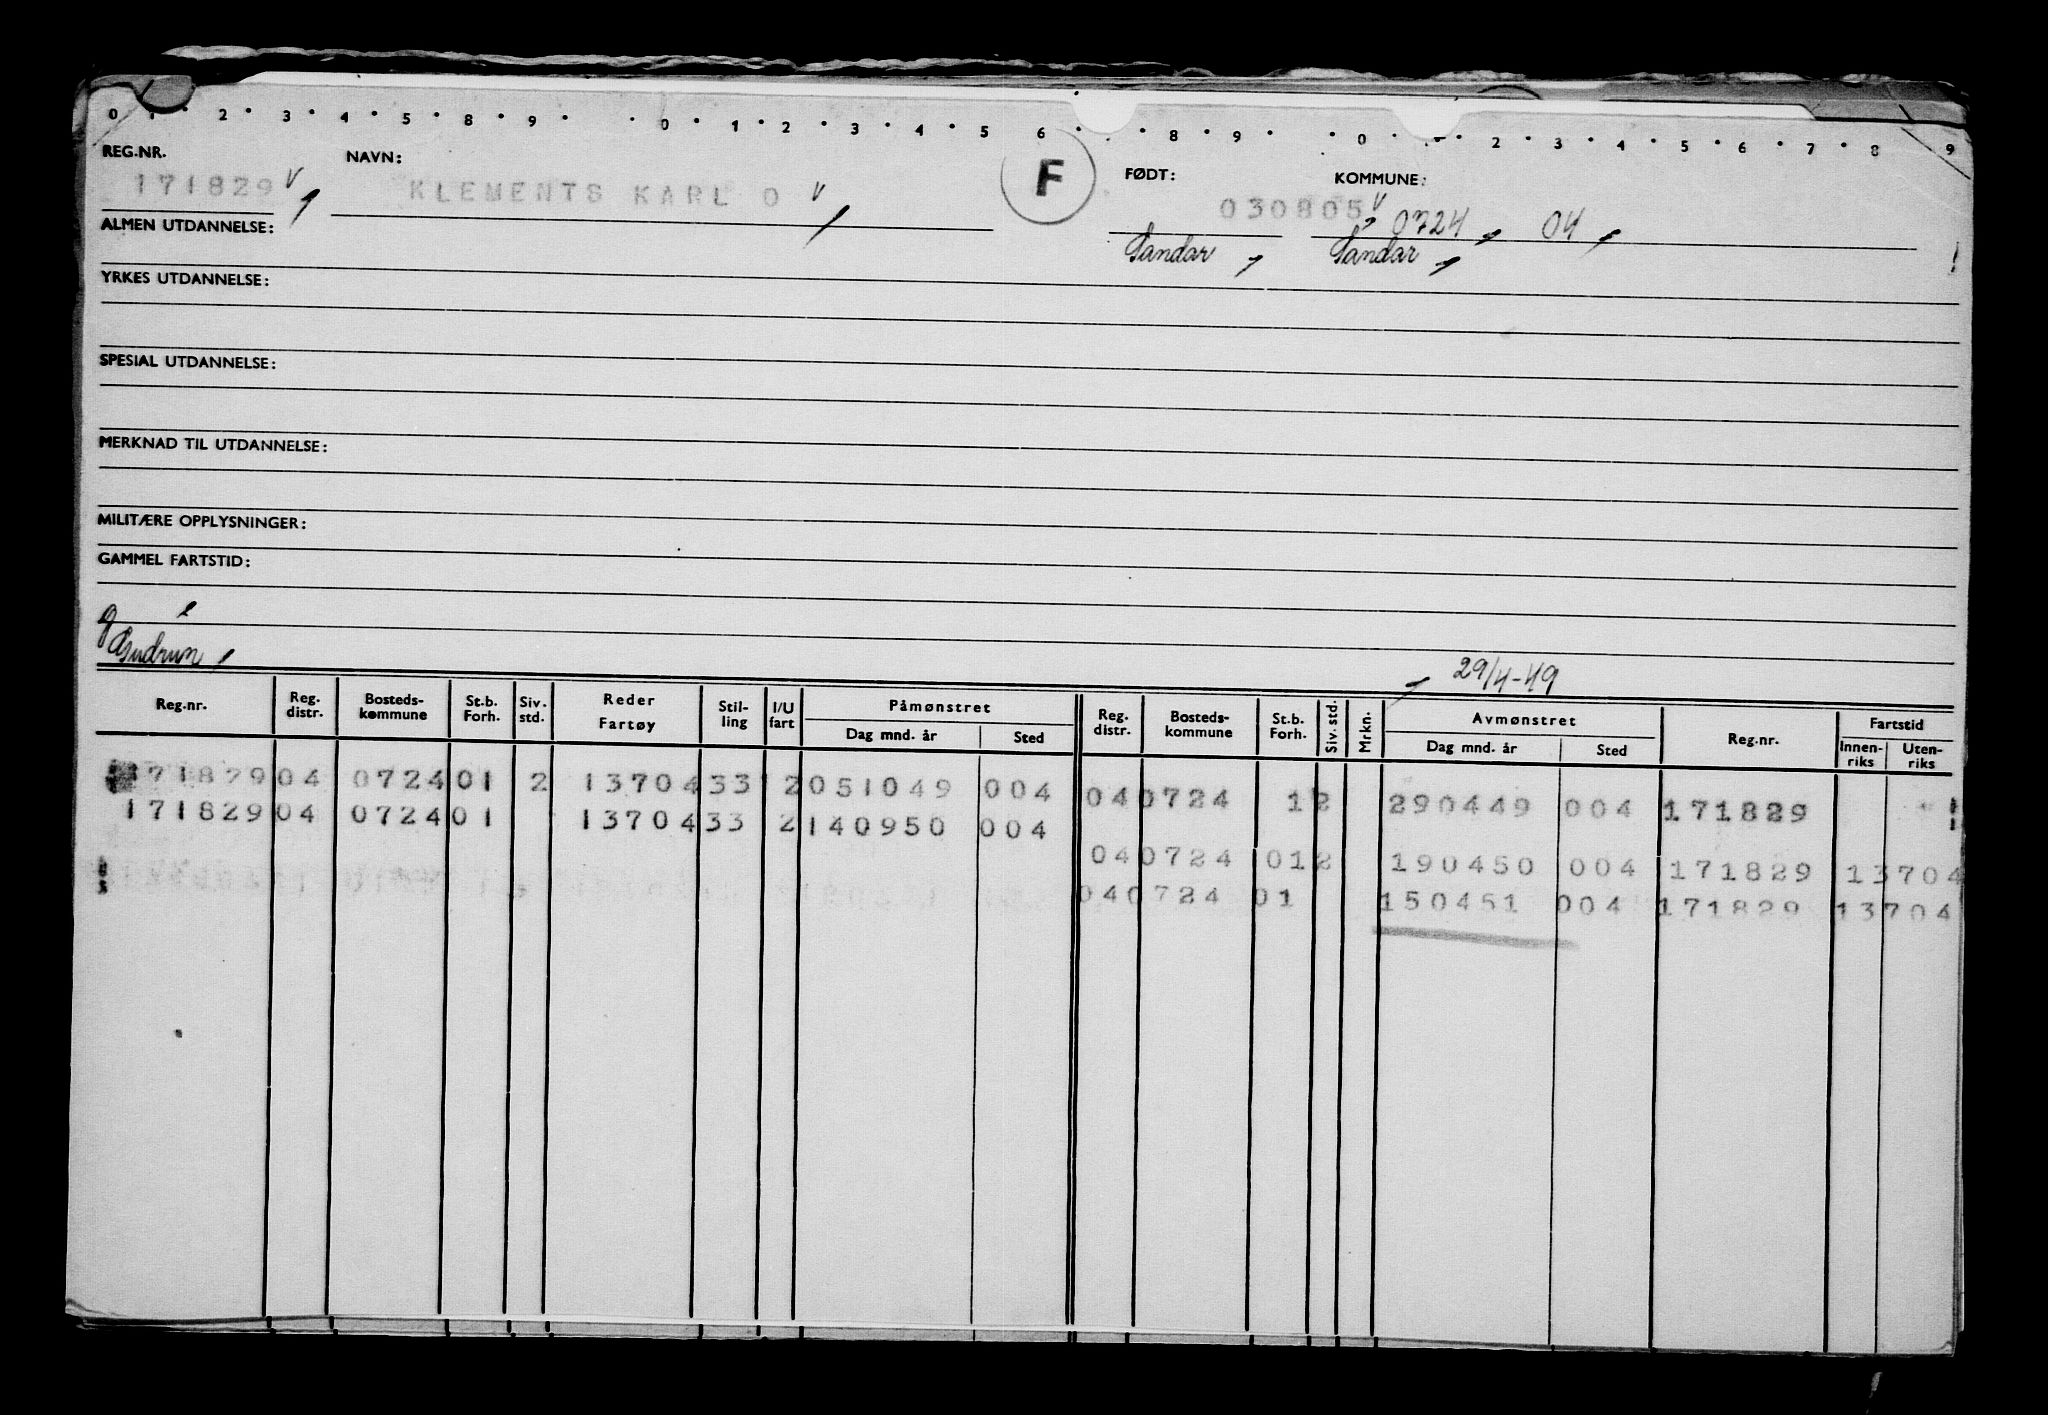 0 1 · 2 · 3 · 4 · 5 · 8 · 9 · · 0 · 1 · 2 · 3 · 4 · 5 6 · · 8 · 9 · · 0 · · 2 · 3 · 4 · 5 · 6 · 7 · 8 9
REG.NR. NAVN: F FØDT: KOMMUNE:
171829 V KLEMENTS KARL O V 030805 V 0724 04
ALMEN UTDANNELSE: Sandar Sandar
YRKES UTDANNELSE:
SPESIAL UTDANNELSE:
MERKNAD TIL UTDANNELSE:
MILITÆRE OPPLYSNINGER:
GAMMEL FARTSTID:
g Gudrun 29/4-49
Reg.nr. Reg. distr. Bosteds-kommune St.b. Forh. Siv. std. Reder Fartøy Stil-ling I/U fart Påmønstret Dag mnd. år Sted Reg. distr. Bosteds-kommune St.b. Forh. Siv. std. Mrkn. Avmønstret Dag mnd. år Sted Reg.nr. Fartstid Innen-riks Uten-riks
171829 04 0724 01 2 13704 33 2 051049 004 04 0724 1 2 290449 004 171829
171829 04 0724 01 13704 33 2 140950 004
04 0724 01 2 190450 004 171829 13704
04 0724 01 150451 004 171829 13704